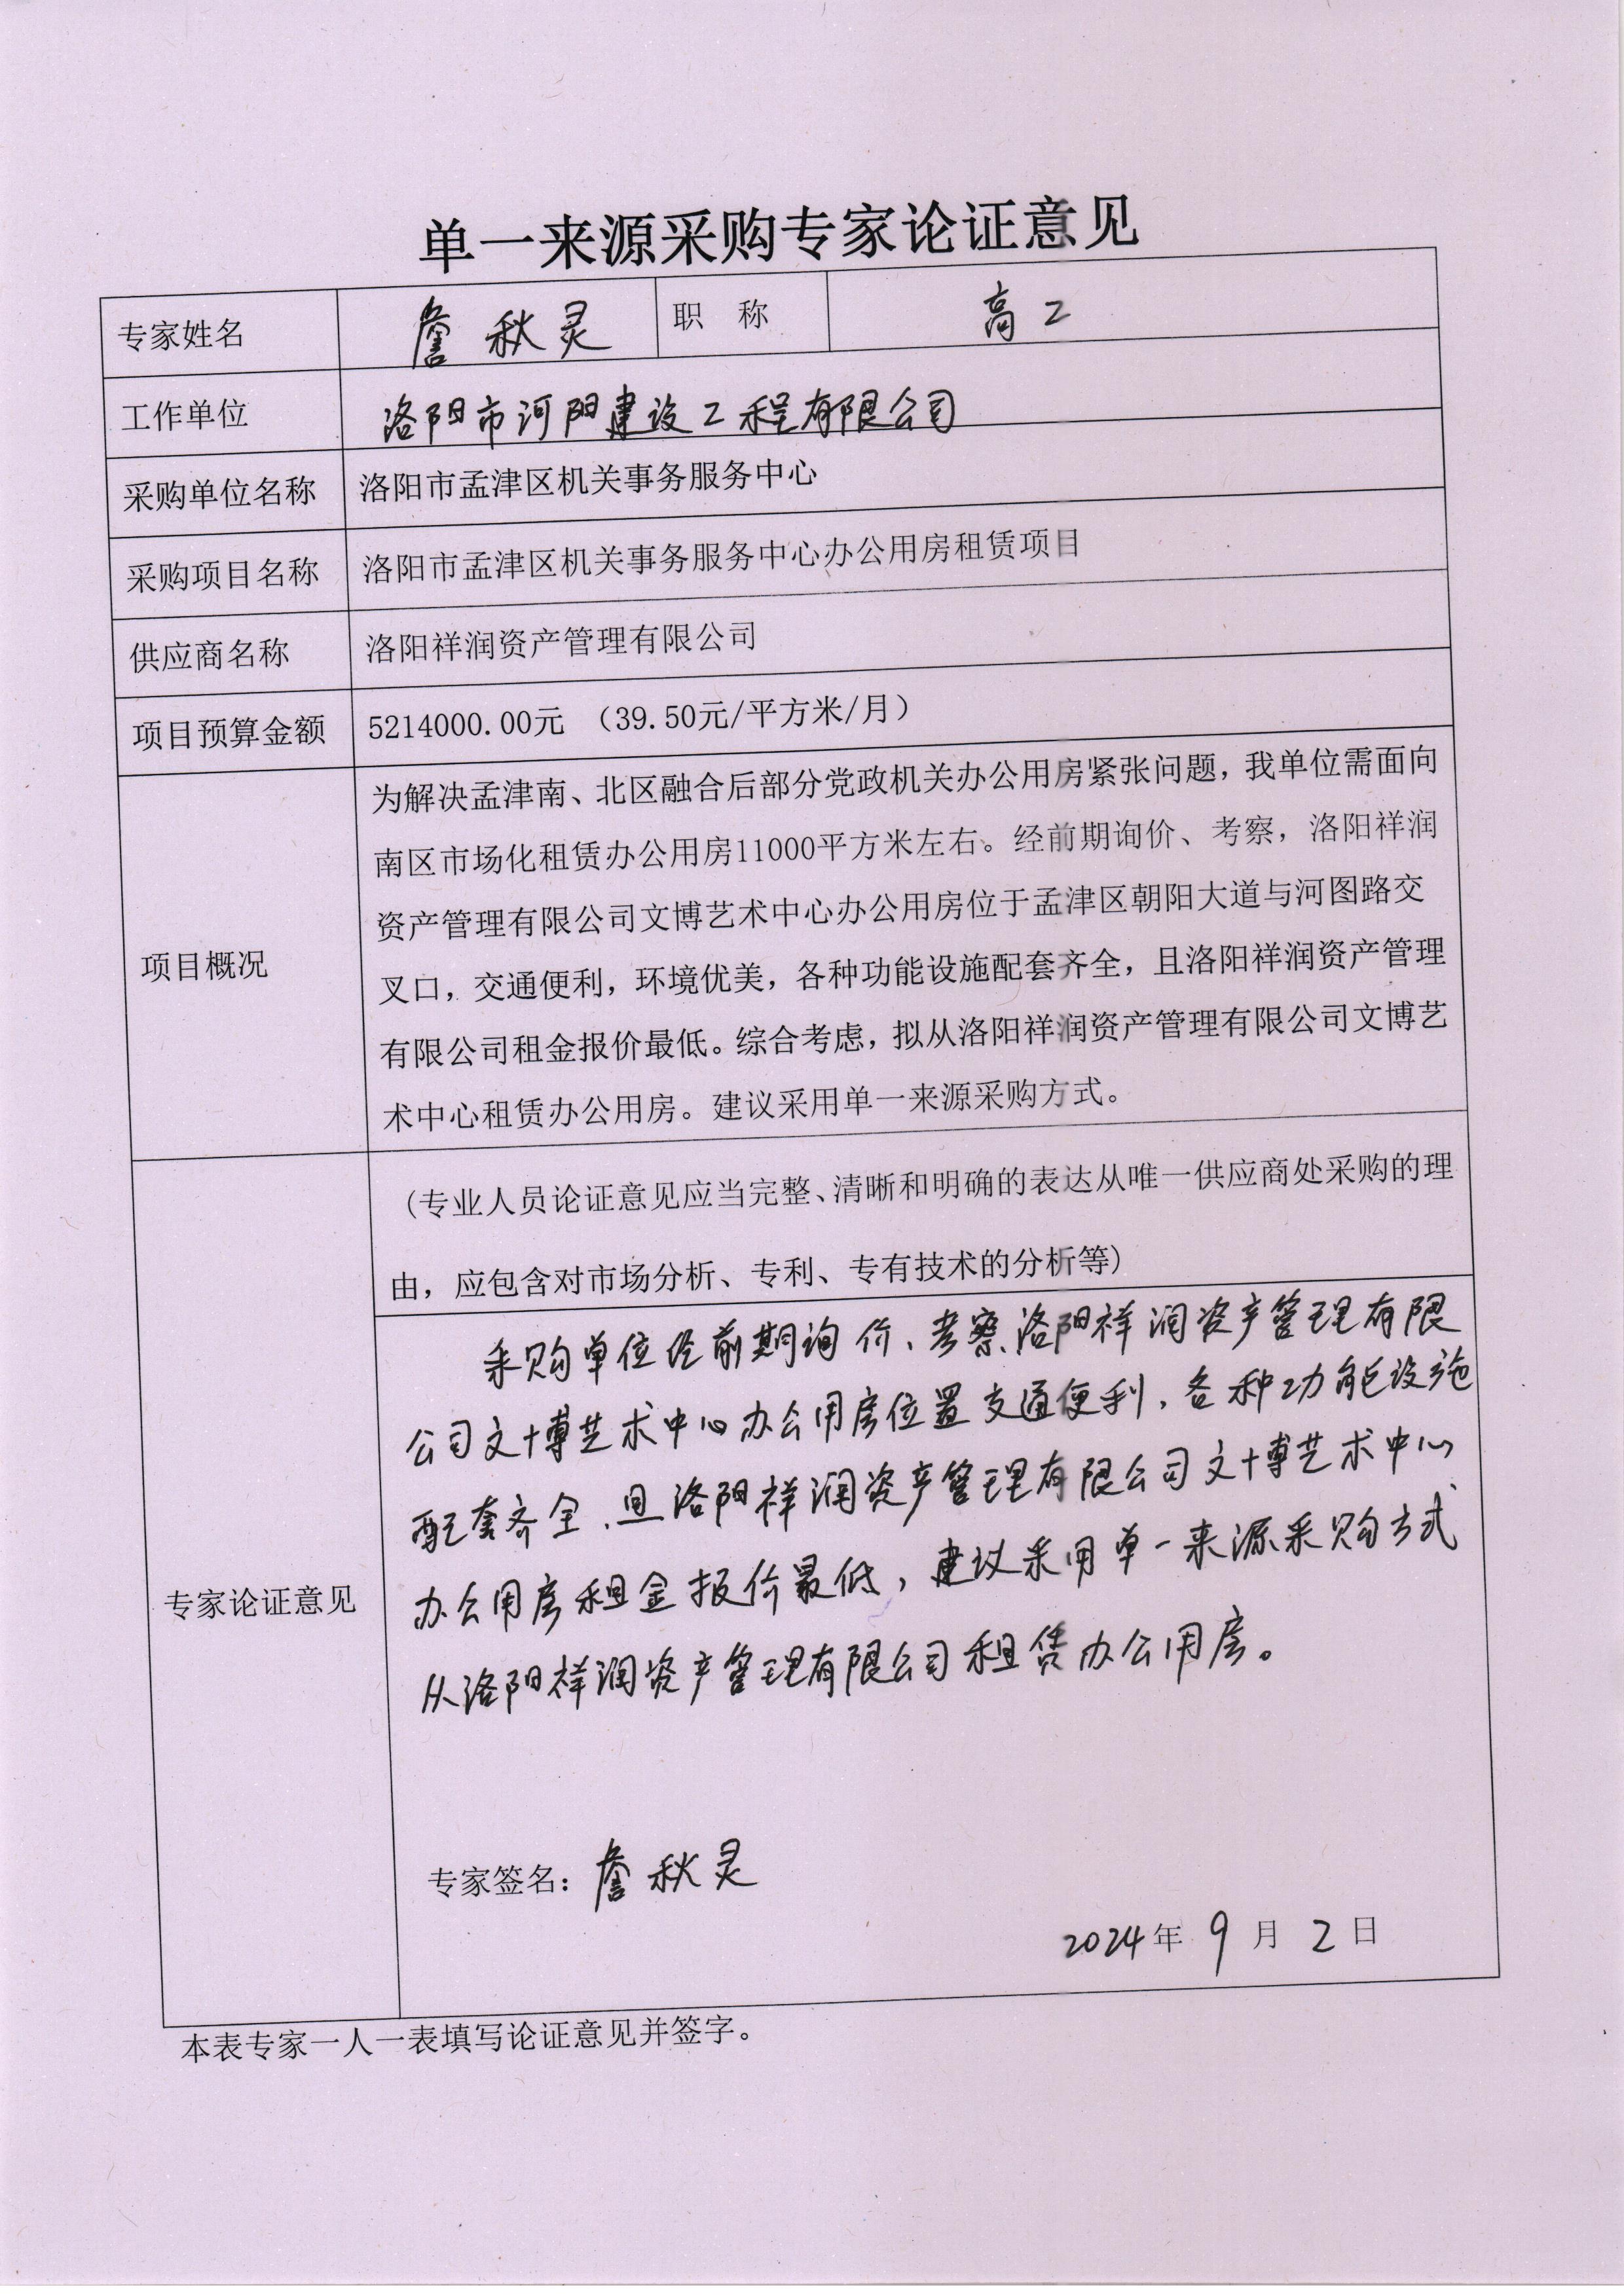 单一来源采购专家论证意见
专家姓名 詹秋灵 职 称 高工
工作单位 洛阳市河阳建设工程有限公司
采购单位名称 洛阳市孟津区机关事务服务中心
采购项目名称 洛阳市孟津区机关事务服务中心办公用房租赁项目
供应商名称 洛阳祥润资产管理有限公司
项目预算金额 5214000.00元 （39.50元/平方米/月）
项目概况
为解决孟津南、北区融合后部分党政机关办公用房紧张问题，我单位需面向
南区市场化租赁办公用房11000平方米左右。经前期询价、考察，洛阳祥润
资产管理有限公司文博艺术中心办公用房位于孟津区朝阳大道与河图路交
叉口，交通便利，环境优美，各种功能设施配套齐全，且洛阳祥润资产管理
有限公司租金报价最低。综合考虑，拟从洛阳祥润资产管理有限公司文博艺
术中心租赁办公用房。建议采用单一来源采购方式。
专家论证意见
(专业人员论证意见应当完整、清晰和明确的表达从唯一供应商处采购的理
由，应包含对市场分析、专利、专有技术的分析等)
采购单位经前期询价、考察，洛阳祥润资产管理有限
公司文博艺术中心办公用房位置交通便利，各种功能设施
配套齐全，且洛阳祥润资产管理有限公司文博艺术中心
办公用房租金报价最低，建议采用单一来源采购方式
从洛阳祥润资产管理有限公司租赁办公用房。
专家签名：詹秋灵
2024年 9 月 2 日
本表专家一人一表填写论证意见并签字。